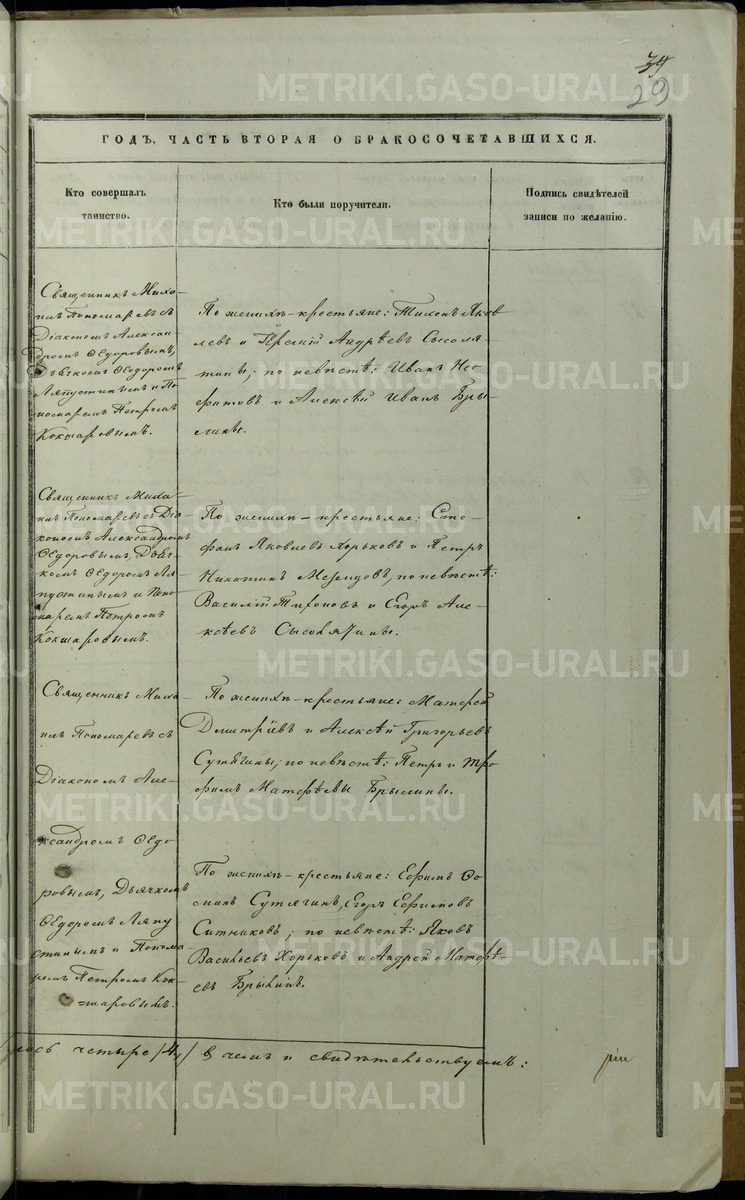 39
29
ГОДЪ, ЧАСТЬ ВТОРАЯ О БРАКОСОЧЕТАВШИХСЯ.
Кто совершалъ
таинство.
Кто были поручители.
Подпись свидѣтелей
записи по желанію.
Священникъ Миха-
илъ Пономаревъ съ
Діакономъ Алексан-
дромъ Ѳедоровымъ,
Дьячкомъ Ѳедоромъ
Ляпустинымъ и По-
номаремъ Петромъ
Кокшаровымъ.
По женихѣ - крестьяне: Тимонъ Яков
левъ и Андрѣевъ Сысоля-
тины; по невѣстѣ: Иванъ Нео-
фитовъ и Алексѣй Иванъ Бры-
лины.
Священникъ Миха-
илъ Пономаревъ съ Діа-
кономъ Александромъ
Ѳедоровымъ, Дьяч-
комъ Ѳедоромъ Ля-
пустинымъ и Поно-
маремъ Петромъ
Кокшаровымъ.
По женихѣ - крестьяне: Сте-
фанъ Яковлевъ Хорьковъ и Петръ
Никитинъ Мезенцовъ, по невѣстѣ:
Василій Тироновъ и Егоръ Але-
ксѣевъ Сысолятины.
Священникъ Миха-
илъ Пономаревъ съ
Діакономъ Але-
ксандромъ Ѳедо-
ровымъ, Дьячкомъ
Ѳедоромъ Ляпу
стинымъ и Понома-
ремъ Петромъ Кок-
шаровымъ.
По женихѣ - крестьяне: Матфей
Дмитріевъ и Алексѣй Григорьевъ
Сутягины; по невѣстѣ: Петръ и Тро
фимъ Матфѣевы Брылины.
По женихѣ - крестьяне: Ефимъ Ѳо
минъ Сутягинъ, Егоръ Ефимовъ
Ситниковъ; по невѣстѣ: Яковъ
Васильевъ Хорьковъ и Андрей Матфѣ-
евъ Брылинъ.
лось четыре /4/ въ чемъ и свидѣтельствуемъ:
METRIKI.GASO-URAL.RU